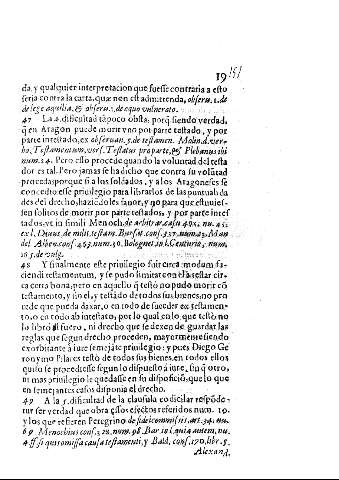 19
da, y qualquier interpretacion que fuesse contraria a esto
seria contra la carta, quæ non est admittenda, observ. 1. de
lege aquilia, & observ. 1. de equo vulnerato.
47 La 4. dificultad tāpoco obsta, porq̃ siendo verdad,
q̃ en Aragon puede morir vno por parte testado, y por
parte intestado, ex observan. 5. de testamen. Molin. d. ver-
bo, Testamentum, vers. Testatus pro parte, & Plebanus ibi
num. 24. Pero esto procede quando la voluntad del testa
dor es tal. Pero jamas se ha dicho que contra su voluntad
proceda, porque si a los soldados, y a los Aragoneses se
concedio este privilegio para librarles de las puntualida
des del derecho, haziēdoles favor, y no para que estuvies-
sen solitos de morir por parte testados, y por parte intes
tados, vt in simili Menoch. de arbitrar. casu 498. nu. 45.
vel. Duen. de milit. testam. Bursat. conf. 337. num. 23. Man
del. Alben. conf. 453. num. 30. Bolognet. in l. Centurio, num.
163. de vulg.
48 Y finalmente este privilegio fuit circa modum fa-
ciendi testamentum, y se pudo limitar con el ā testar cir-
ca certa bona, pero en aquello q̃ testò no pudo morir cō
testamento, y sin el, y testādo de todos sus bienes, no pro
cede que pueda dexar, o en todo de suceder ex testamen-
to, o en todo ab intestato, por lo qual, en lo que testò, no
lo librò el fuero, ni drecho que se dexen de guardar las
reglas que segun drecho proceden, mayormente siendo
exorbitante à iure semejāte privilegio: y pues Diego Ge
ronymo Pilares testò de todos sus bienes, en todos ellos
quiso se procediesse segun lo dispuesto à iure, sin q̃ otro,
ni mas privilegio le quedasse en su disposiciō, que lo que
en semejantes casos disponia el derecho.
49 A la 5. dificultad de la clausula codicilar respōde-
tur ser verdad que obra essos efectos referidos num. 19.
y los que refieren Peregrino de fideicommissis, art. 34. nu.
69. Menochius conf. 328. num. 98. Bar. in l. quia autem, nu.
4. ff. si quis omissa causa testamenti, y Bald. conf. 170. libr. 5.
Alexand.